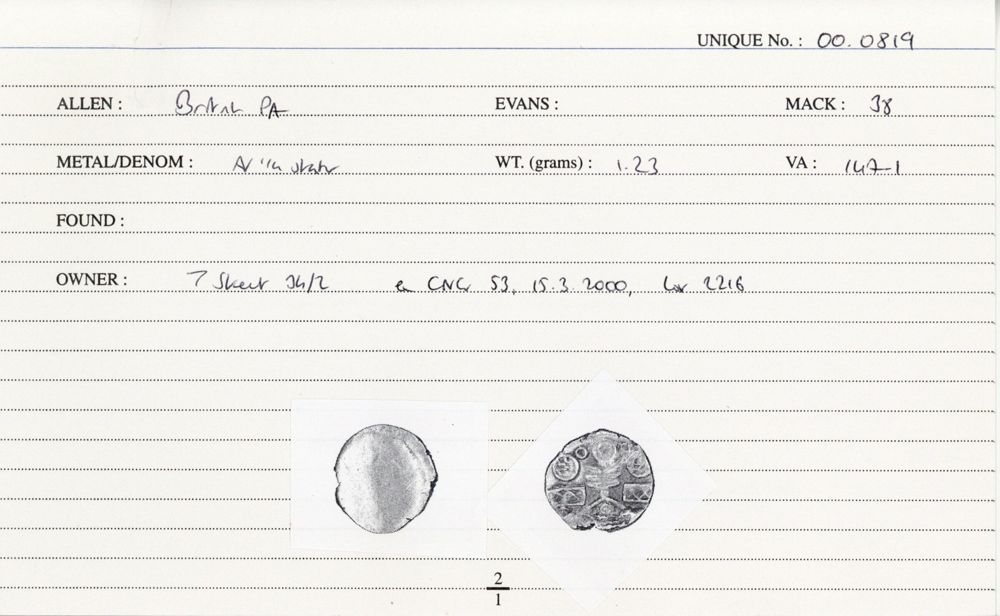 UNIQUE No. : 00.0819
ALLEN : British PA EVANS : MACK : 38
METAL/DENOM : AV 1/4 stater WT. (grams) : 1.23 VA : 147-1
FOUND :
OWNER : Skeet 34/2 CNG 53, 15.3.2000, Lot 2216
2
1